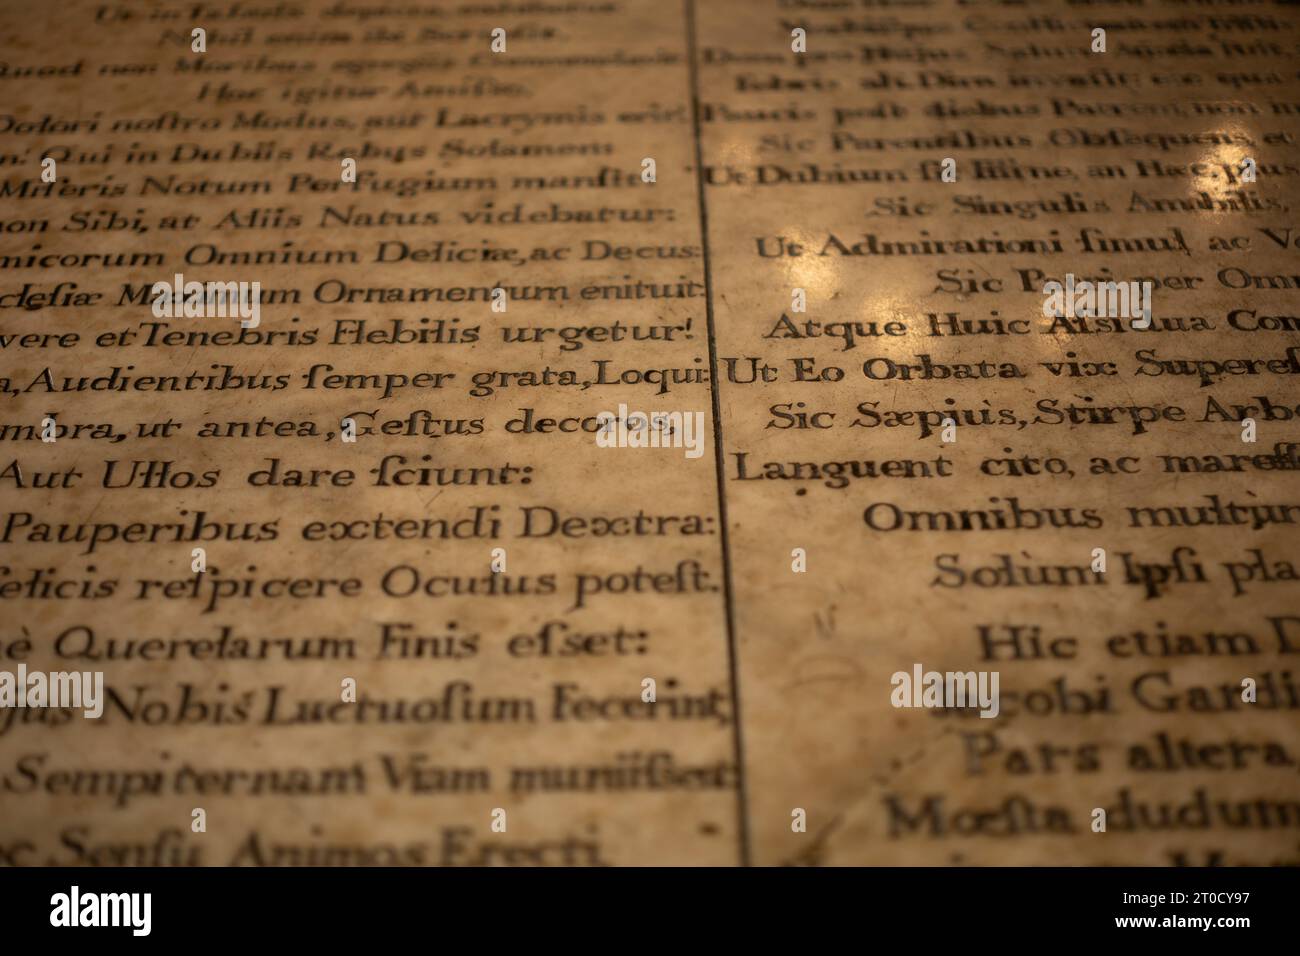 Nihil enim de
Quad non Moribus
Hoc igitur Amisso.
Dolori noſtro Modus, aut Lacrymis erit!
Qui in Dubiis Rebus Solamen
Miſeris Notum Perfugium manſit
non Sibi, at Aliis Natus videbatur:
micorum Omnium Deliciæ, ac Decus:
cleſiæ Maximum Ornamentum enituit.
vere et Tenebris Flebilis urgetur!
a, Audientibus ſemper grata, Loqui:
mbra, ut antea, Geſtus decoros,
Aut Ullos dare ſciunt:
Pauperibus extendi Dextra:
felicis reſpicere Oculus poteſt.
uè Querelarum Finis eſset:
ijus Nobis Luctuoſum Fecerint,
Sempiternam Viam muniiſset
ac Senſu Animos Erecti
Paucis poſt diebus Patrem, non
Sic Parentibus Obſequens, et
Ut Dubium ſit Illine, an Hæc plus
Sic Singulis Amabilis,
Ut Admirationi ſimul, ac Ve
Sic Patri per Omn
Atque Huic Aſsidua Com
Ut Eo Orbata vix Supereſ
Sic Sæpiùs, Stirpe Arbo
Languent cito, ac mareſ
Omnibus multùm
Solùm Ipſi pla
Hic etiam D
Jacobi Gardi
Pars altera
Mœſta dudum
alamy
alamy
Image ID: 2T0CY97
www.alamy.com